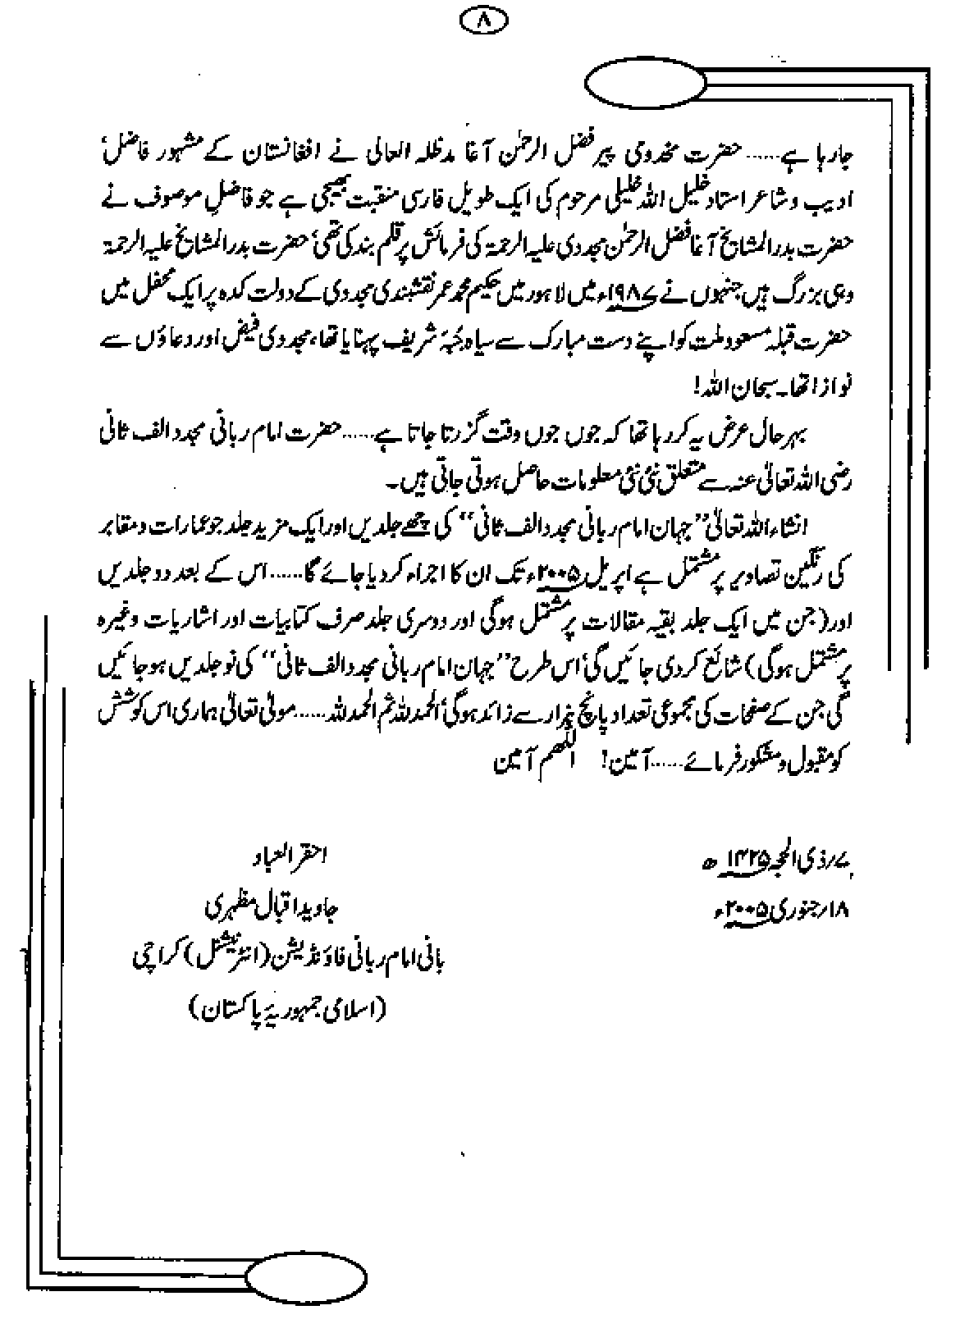 ۸
جارہا ہے..... حضرت مخدومی پیر فضل الرحمٰن آغا مدظلہ العالی نے افغانستان کے مشہور فاضل،
ادیب و شاعر استاد خلیل اللہ خلیلی مرحوم کی ایک طویل فارسی منقبت بھیجی ہے جو فاضلِ موصوف نے
حضرت بدر المشایخ آغا فضل الرحمٰن مجددی علیہ الرحمۃ کی فرمائش پر قلم بند کی تھی، حضرت بدر المشایخ علیہ الرحمۃ
وہی بزرگ ہیں جنہوں نے ۱۹۸۷ء میں لاہور میں حکیم محمد عمر نقشبندی مجددی کے دولت کدہ پر ایک محفل میں
حضرت قبلہ مسعود ملت کو اپنے دست مبارک سے سیاہ جُبہّ شریف پہنایا تھا، مجددی فیض اور دعاؤں سے
نوازا تھا۔ سبحان اللہ!
بہرحال عرض یہ کر رہا تھا کہ جوں جوں وقت گزرتا جاتا ہے..... حضرت امام ربانی مجدد الف ثانی
رضی اللہ تعالیٰ عنہ سے متعلق نئی نئی معلومات حاصل ہوتی جاتی ہیں۔
انشاء اللہ تعالیٰ "جہان امام ربانی مجدد الف ثانی" کی چھے جلدیں اور ایک مزید جلد جو عمارات و مقابر
کی رنگین تصاویر پر مشتمل ہے اپریل ۲۰۰۵ء تک ان کا اجراء کر دیا جائے گا...... اس کے بعد دو جلدیں
اور (جن میں ایک جلد بقیہ مقالات پر مشتمل ہوگی اور دوسری جلد صرف کتابیات اور اشاریات وغیرہ
پر مشتمل ہوگی) شائع کردی جائیں گی، اس طرح "جہان امام ربانی مجدد الف ثانی" کی نو جلدیں ہوجائیں
گی جن کے صفحات کی مجموعی تعداد پانچ ہزار سے زائد ہوگی، الحمدللہ ثم الحمد للہ...... مولیٰ تعالیٰ ہماری اس کوشش
کو مقبول و مشکور فرمائے..... آمین! اللھم آمین
۷/ذی الحجہ ۱۴۲۵ھ
۱۸/جنوری ۲۰۰۵ء
احقر العباد
جاوید اقبال مظہری
بانی امام ربانی فاؤنڈیشن (انٹرنیشنل) کراچی
(اسلامی جمہوریۂ پاکستان)